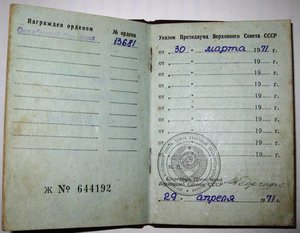 Награжден орденом
№ ордена
Октябрьской
13681
Ж № 644192
Указом Президиума Верховного Совета СССР
от „30“ марта 1971 г.
от 19 г.
от 19 г.
от 19 г.
от 19 г.
от 19 г.
от 19 г.
от 19 г.
М. П.
Секретарь Президиума
Верховного Совета СССР
29 апреля 1971 г.